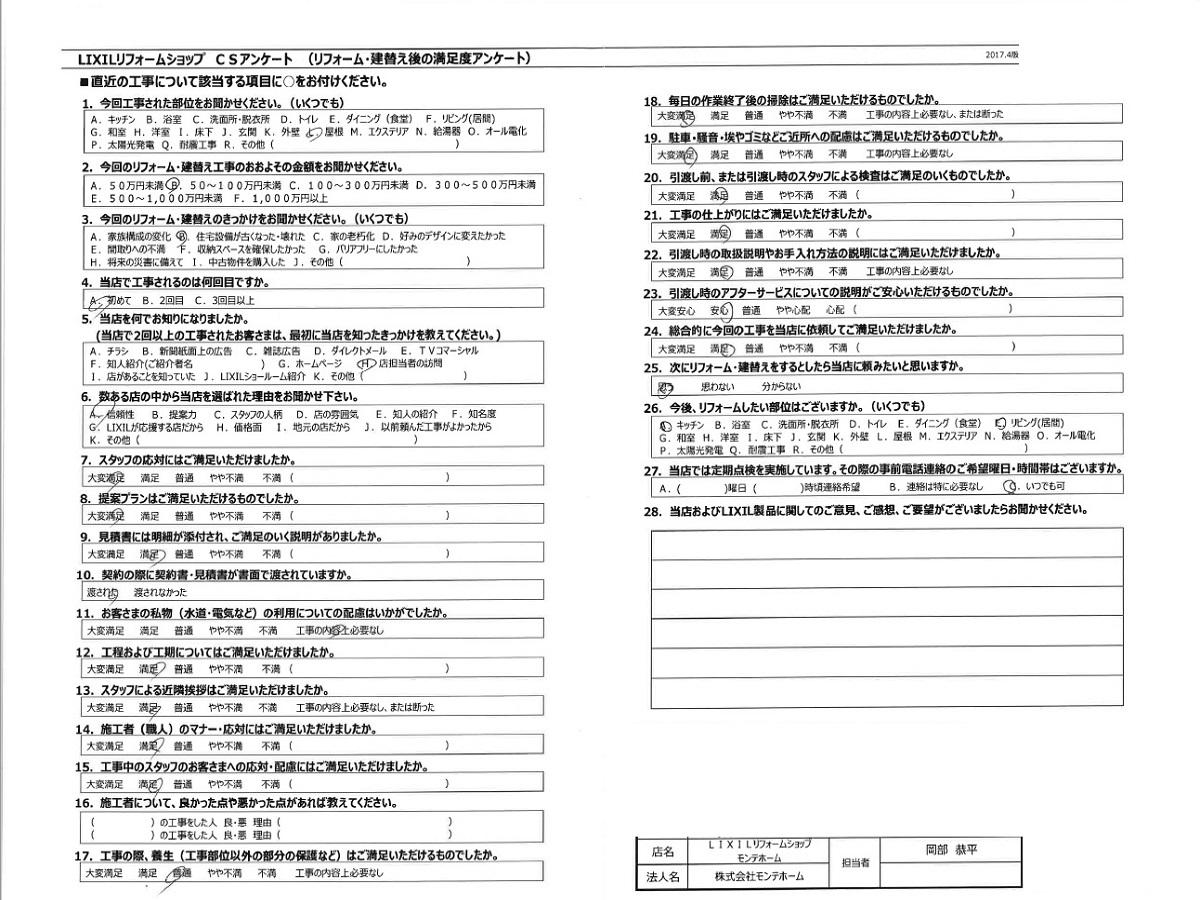 LIXILリフォームショップ CSアンケート （リフォーム・建替え後の満足度アンケート）
2017.4版
■直近の工事について該当する項目に○をお付けください。
1．今回工事された部位をお聞かせください。（いくつでも）
A．キッチン B．浴室 C．洗面所・脱衣所 D．トイレ E．ダイニング（食堂） F．リビング(居間)
G．和室 H．洋室 I．床下 J．玄関 K．外壁 L．屋根 M．エクステリア N．給湯器 O．オール電化
P．太陽光発電 Q．耐震工事 R．その他（ ）
2．今回のリフォーム・建替え工事のおおよその金額をお聞かせください。
A．50万円未満 B．50～100万円未満 C．100～300万円未満 D．300～500万円未満
E．500～1,000万円未満 F．1,000万円以上
3．今回のリフォーム・建替えのきっかけをお聞かせください。（いくつでも）
A．家族構成の変化 B．住宅設備が古くなった・壊れた C．家の老朽化 D．好みのデザインに変えたかった
E．間取りへの不満 F．収納スペースを確保したかった G．バリアフリーにしたかった
H．将来の災害に備えて I．中古物件を購入した J．その他（ ）
4．当店で工事されるのは何回目ですか。
A．初めて B．2回目 C．3回目以上
5．当店を何でお知りになりましたか。
（当店で2回以上の工事されたお客さまは、最初に当店を知ったきっかけを教えてください。）
A．チラシ B．新聞紙面上の広告 C．雑誌広告 D．ダイレクトメール E．TVコマーシャル
F．知人紹介(ご紹介者名 ) G．ホームページ H．店担当者の訪問
I．店があることを知っていた J．LIXILショールーム紹介 K．その他（ ）
6．数ある店の中から当店を選ばれた理由をお聞かせ下さい。
A．信頼性 B．提案力 C．スタッフの人柄 D．店の雰囲気 E．知人の紹介 F．知名度
G．LIXILが応援する店だから H．価格面 I．地元の店だから J．以前頼んだ工事がよかったから
K．その他（ ）
7．スタッフの応対にはご満足いただけましたか。
大変満足 満足 普通 やや不満 不満 （ ）
8．提案プランはご満足いただけるものでしたか。
大変満足 満足 普通 やや不満 不満 （ ）
9．見積書には明細が添付され、ご満足のいく説明がありましたか。
大変満足 満足 普通 やや不満 不満 （ ）
10．契約の際に契約書・見積書が書面で渡されていますか。
渡された 渡されなかった
11．お客さまの私物（水道・電気など）の利用についての配慮はいかがでしたか。
大変満足 満足 普通 やや不満 不満 工事の内容上必要なし
12．工程および工期についてはご満足いただけましたか。
大変満足 満足 普通 やや不満 不満 （ ）
13．スタッフによる近隣挨拶はご満足いただけましたか。
大変満足 満足 普通 やや不満 不満 工事の内容上必要なし、または断った
14．施工者（職人）のマナー・応対にはご満足いただけましたか。
大変満足 満足 普通 やや不満 不満 （ ）
15．工事中のスタッフのお客さまへの応対・配慮にはご満足いただけましたか。
大変満足 満足 普通 やや不満 不満 （ ）
16．施工者について、良かった点や悪かった点があれば教えてください。
（ ）の工事をした人 良・悪 理由（ ）
（ ）の工事をした人 良・悪 理由（ ）
17．工事の際、養生（工事部位以外の部分の保護など）はご満足いただけましたか。
大変満足 満足 普通 やや不満 不満 工事の内容上必要なし
18．毎日の作業終了後の掃除はご満足いただけるものでしたか。
大変満足 満足 普通 やや不満 不満 工事の内容上必要なし、または断った
19．駐車・騒音・埃やゴミなどご近所への配慮はご満足いただけるものでしたか。
大変満足 満足 普通 やや不満 不満 工事の内容上必要なし
20．引渡し前、または引渡し時のスタッフによる検査はご満足のいくものでしたか。
大変満足 満足 普通 やや不満 不満 （ ）
21．工事の仕上がりにはご満足いただけましたか。
大変満足 満足 普通 やや不満 不満 （ ）
22．引渡し時の取扱説明やお手入れ方法の説明にはご満足いただけましたか。
大変満足 満足 普通 やや不満 不満 工事の内容上必要なし
23．引渡し時のアフターサービスについての説明がご安心いただけるものでしたか。
大変安心 安心 普通 やや心配 心配 （ ）
24．総合的に今回の工事を当店に依頼してご満足いただけましたか。
大変満足 満足 普通 やや不満 不満 （ ）
25．次にリフォーム・建替えをするとしたら当店に頼みたいと思いますか。
思う 思わない 分からない
26．今後、リフォームしたい部位はございますか。（いくつでも）
A．キッチン B．浴室 C．洗面所・脱衣所 D．トイレ E．ダイニング（食堂） F．リビング(居間)
G．和室 H．洋室 I．床下 J．玄関 K．外壁 L．屋根 M．エクステリア N．給湯器 O．オール電化
P．太陽光発電 Q．耐震工事 R．その他（ ）
27．当店では定期点検を実施しています。その際の事前電話連絡のご希望曜日・時間帯はございますか。
A．（ )曜日（ )時頃連絡希望 B．連絡は特に必要なし C．いつでも可
28．当店およびLIXIL製品に関してのご意見、ご感想、ご要望がございましたらお聞かせください。
店名 LIXILリフォームショップ
モンテホーム
担当者 岡部 恭平
法人名 株式会社モンテホーム